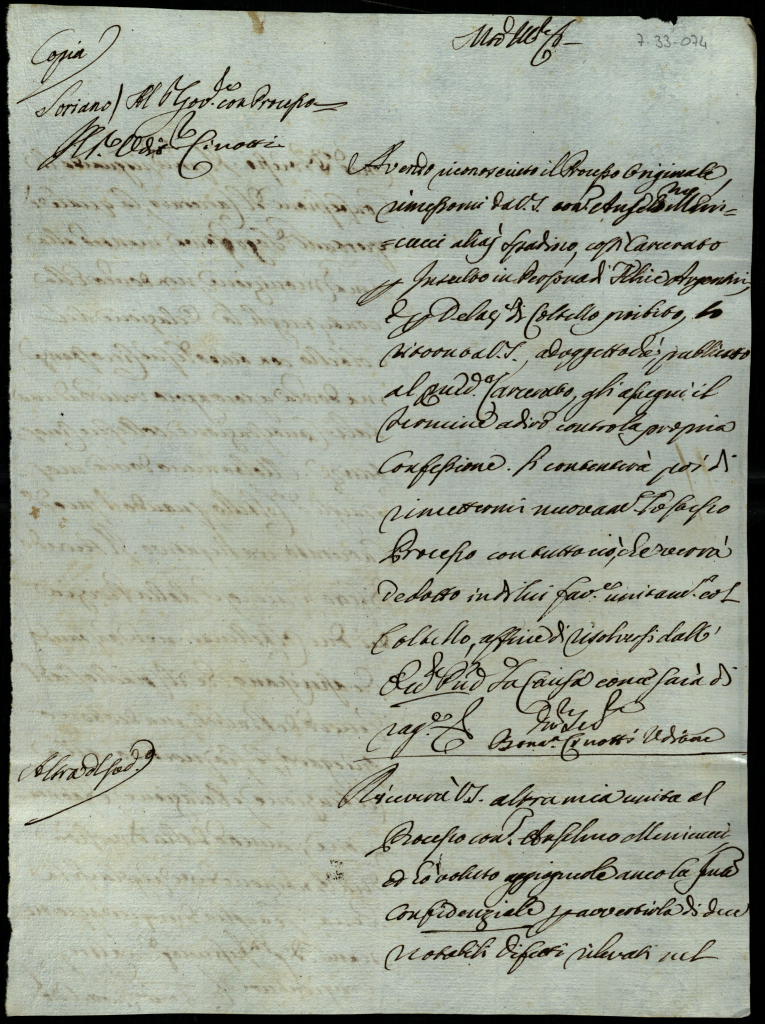 Copia
7-33-074
Soriano / Al Sr. Gov.re con Processo
Cinotti
Avendo riconosciuto il Processo Originale,
rimessomi da V.S. con.a Anselmo Meni=
=cucci alias Spadino, costì Carcerato
p Insulto in Persona di Felice
e p Delaz.e di Coltello proibito, lo
ritorno a V.S., ad oggetto che publicato
al sud.o Carcerato, gli assegni il
termine a dire contro la propria
Confessione. Si contenterà poi di
rimettermi nuovam.e l'istesso
Processo con tutto ciò, che verrà
dedotto in di lui fav.e unitam.e col
Coltello, affine di risolversi dall'
la Causa come sarà di
rag.e
Bona.a Cinotti Uditore
Altra del sud.o
Riceverà V.S. altra mia unita al
Processo con.a Anselmo Menicucci
ed hò voluto aggiugnerle anco la sua
confidenziale p avvertirla di due
notabili difetti rilevati nel